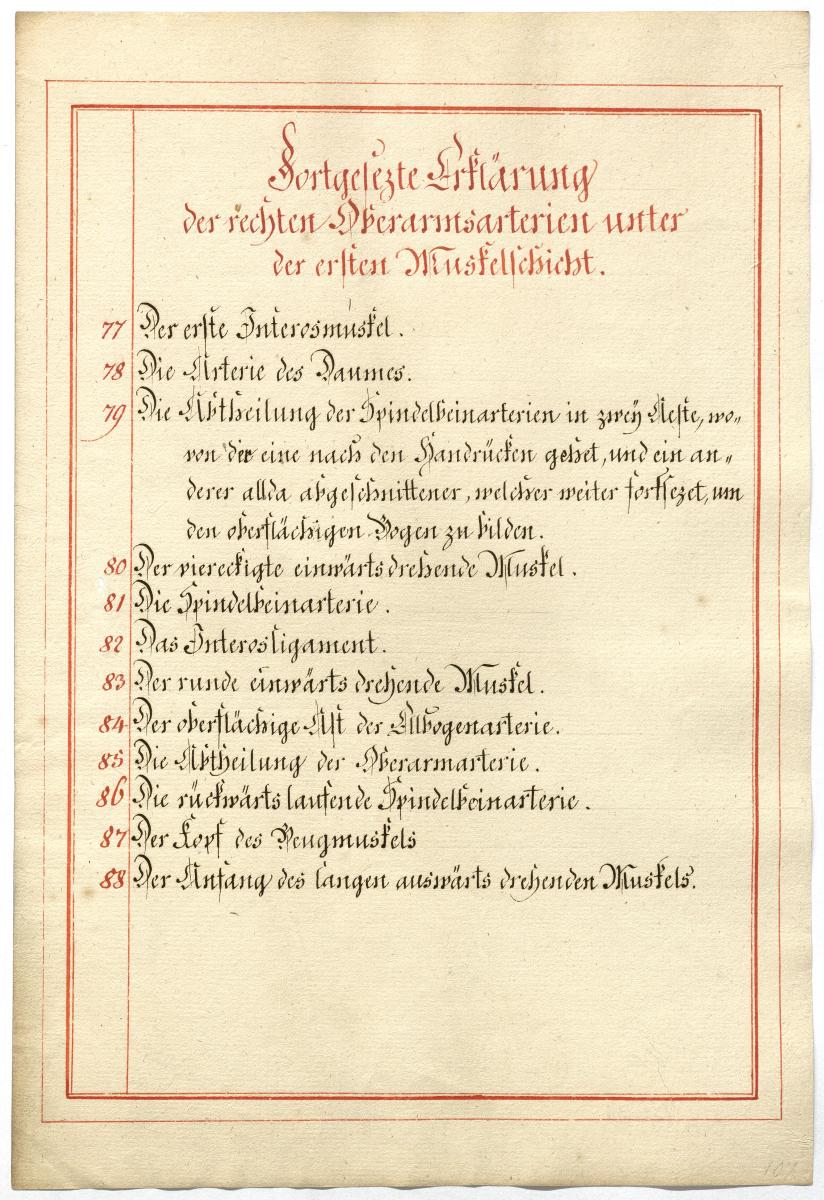 Fortgesezte Erklärung
der rechten Oberarmsarterien unter
der ersten Muskelschicht.
77 Der erste Interosmuskel.
78 Die Arterie des Daumes.
79 Die Abtheilung der Spindelbeinarterien in zweÿ Aeste, wo„
von der eine nach den Handrücken gehet, und ein an„
derer allda abgeschnittener, welcher weiter fortsezet, um
den oberflächigen Bogen zu bilden.
80 Der viereckigte einwärts drehende Muskel.
81 Die Spindelbeinarterie.
82 Das Interosligament.
83 Der runde einwärts drehende Muskel.
84 Der oberflächige Ast der Ellbogenarterie.
85 Die Abtheilung der Oberarmarterie.
86 Die rückwärts laufende Spindelbeinarterie.
87 Der Kopf des Beugmuskels
88 Der Anfang des langen auswärts drehenden Muskels.